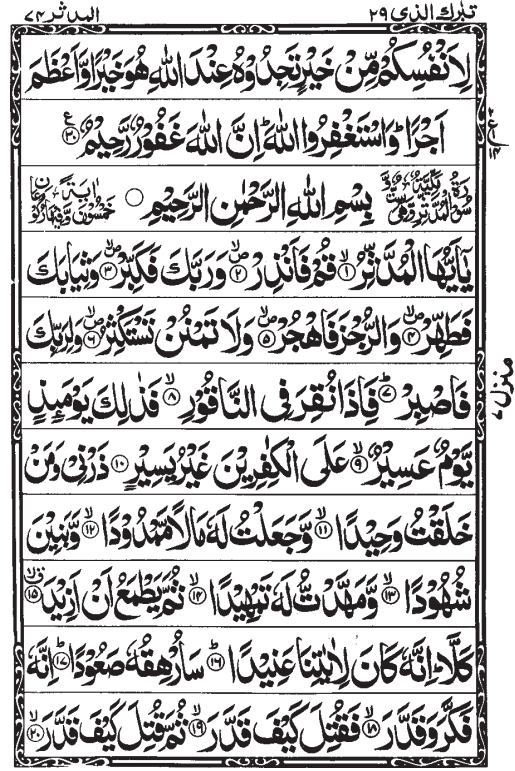 تبٰرك الذی ۲۹
المدثر ۷۴
لِاَنْفُسِكُمْ مِّنْ خَيْرٍ تَجِدُوْهُ عِنْدَ اللّٰهِ هُوَ خَيْرًا وَّاَعْظَمَ
اَجْرًا ؕ وَاسْتَغْفِرُوا اللّٰهَ ؕ اِنَّ اللّٰهَ غَفُوْرٌ رَّحِيْمٌ ۟﴿۲۰﴾
سُوْرَةُ الْمُدَّثِّرِ مَكِّيَّةٌ وَّهِيَ بِسْمِ اللّٰهِ الرَّحْمٰنِ الرَّحِيْمِ ۝
يٰۤاَيُّهَا الْمُدَّثِّرُ ۙ﴿۱﴾ قُمْ فَاَنْذِرْ ۪ۙ﴿۲﴾ وَرَبَّكَ فَكَبِّرْ ۪ۙ﴿۳﴾ وَثِيَابَكَ
فَطَهِّرْ ۪ۙ﴿۴﴾ وَالرُّجْزَ فَاهْجُرْ ۪ۙ﴿۵﴾ وَلَا تَمْنُنْ تَسْتَكْثِرُ ۪ۙ﴿۶﴾ وَلِرَبِّكَ
فَاصْبِرْ ؕ﴿۷﴾ فَاِذَا نُقِرَ فِى النَّاقُوْرِ ۙ﴿۸﴾ فَذٰلِكَ يَوْمَىِٕذٍ
يَّوْمٌ عَسِيْرٌ ۙ﴿۹﴾ عَلَى الْكٰفِرِيْنَ غَيْرُ يَسِيْرٍ ﴿۱۰﴾ ذَرْنِىْ وَمَنْ
خَلَقْتُ وَحِيْدًا ۙ﴿۱۱﴾ وَّجَعَلْتُ لَهٗ مَالًا مَّمْدُوْدًا ۙ﴿۱۲﴾ وَّبَنِيْنَ
شُهُوْدًا ۙ﴿۱۳﴾ وَّمَهَّدْتُّ لَهٗ تَمْهِيْدًا ۙ﴿۱۴﴾ ثُمَّ يَطْمَعُ اَنْ اَزِيْدَ ۗۙ﴿۱۵﴾
كَلَّا ؕ اِنَّهٗ كَانَ لِاٰيٰتِنَا عَنِيْدًا ؕ﴿۱۶﴾ سَاُرْهِقُهٗ صَعُوْدًا ؕ﴿۱۷﴾ اِنَّهٗ
فَكَّرَ وَقَدَّرَ ۙ﴿۱۸﴾ فَقُتِلَ كَيْفَ قَدَّرَ ۙ﴿۱۹﴾ ثُمَّ قُتِلَ كَيْفَ قَدَّرَ ۙ﴿۲۰﴾
منزل ۷